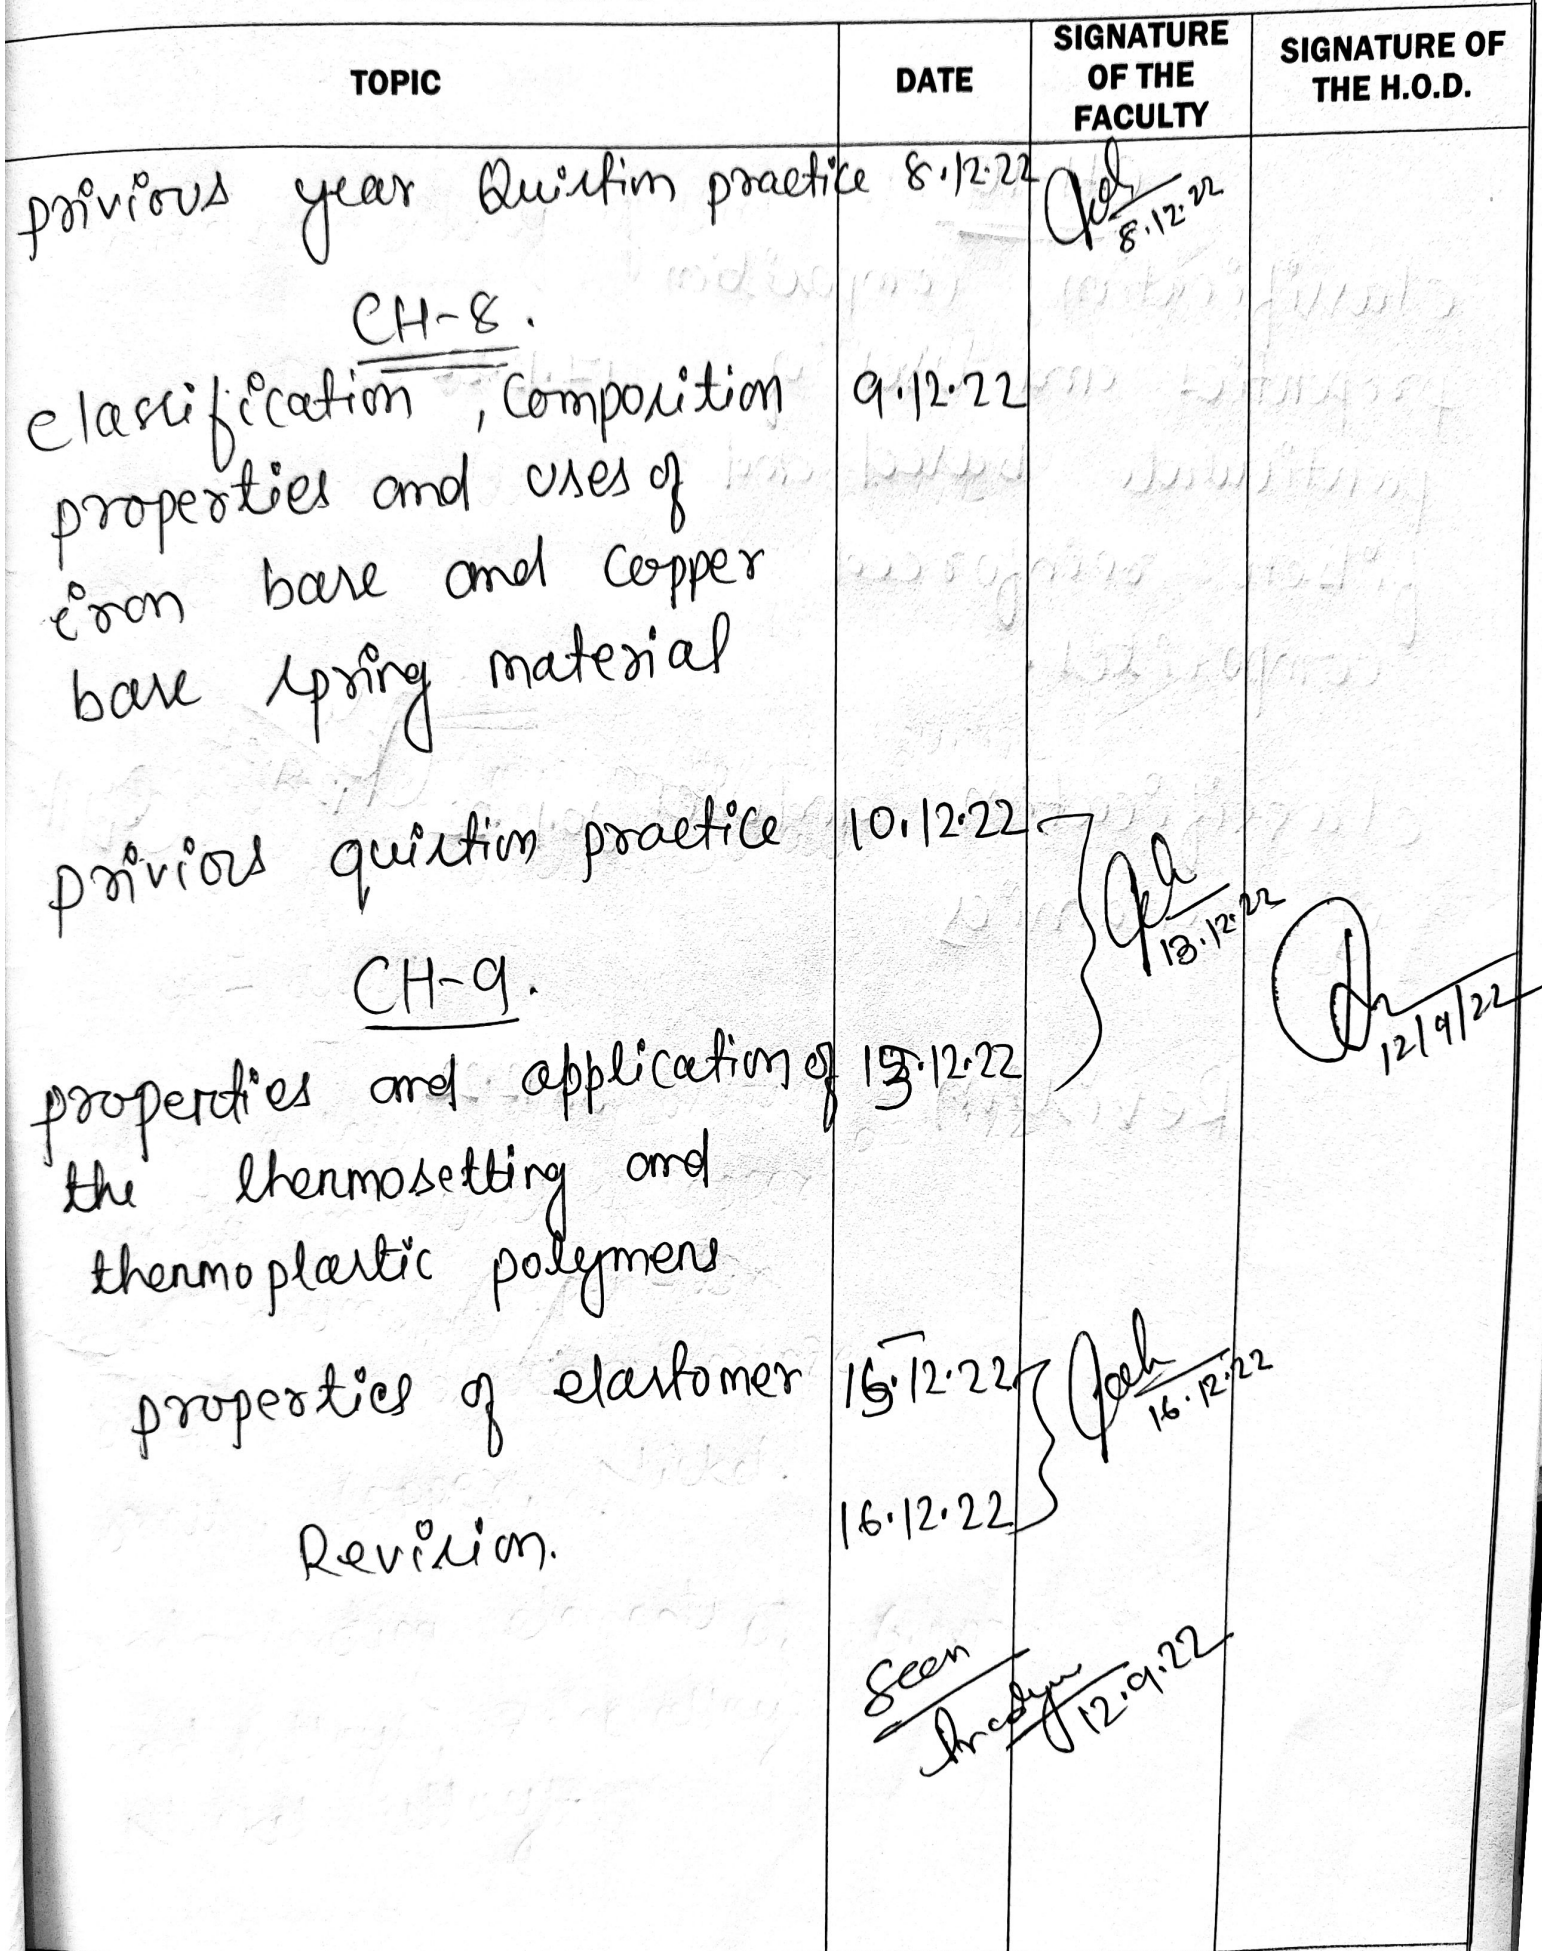 TOPIC DATE SIGNATURE OF THE FACULTY SIGNATURE OF THE H.O.D.
privious year Quistion practice 8.12.22
8.12.22
CH-8.
classification, Composition 9.12.22
properties and uses of
iron base and Copper
base spring material
privious quistion practice 10.12.22
13.12.22
CH-9.
12/9/22
properties and application of 13.12.22
the thermosetting and
thermoplastic polymers
properties of elastomer 15.12.22
16.12.22
16.12.22
Revision.
Seen
12.9.22